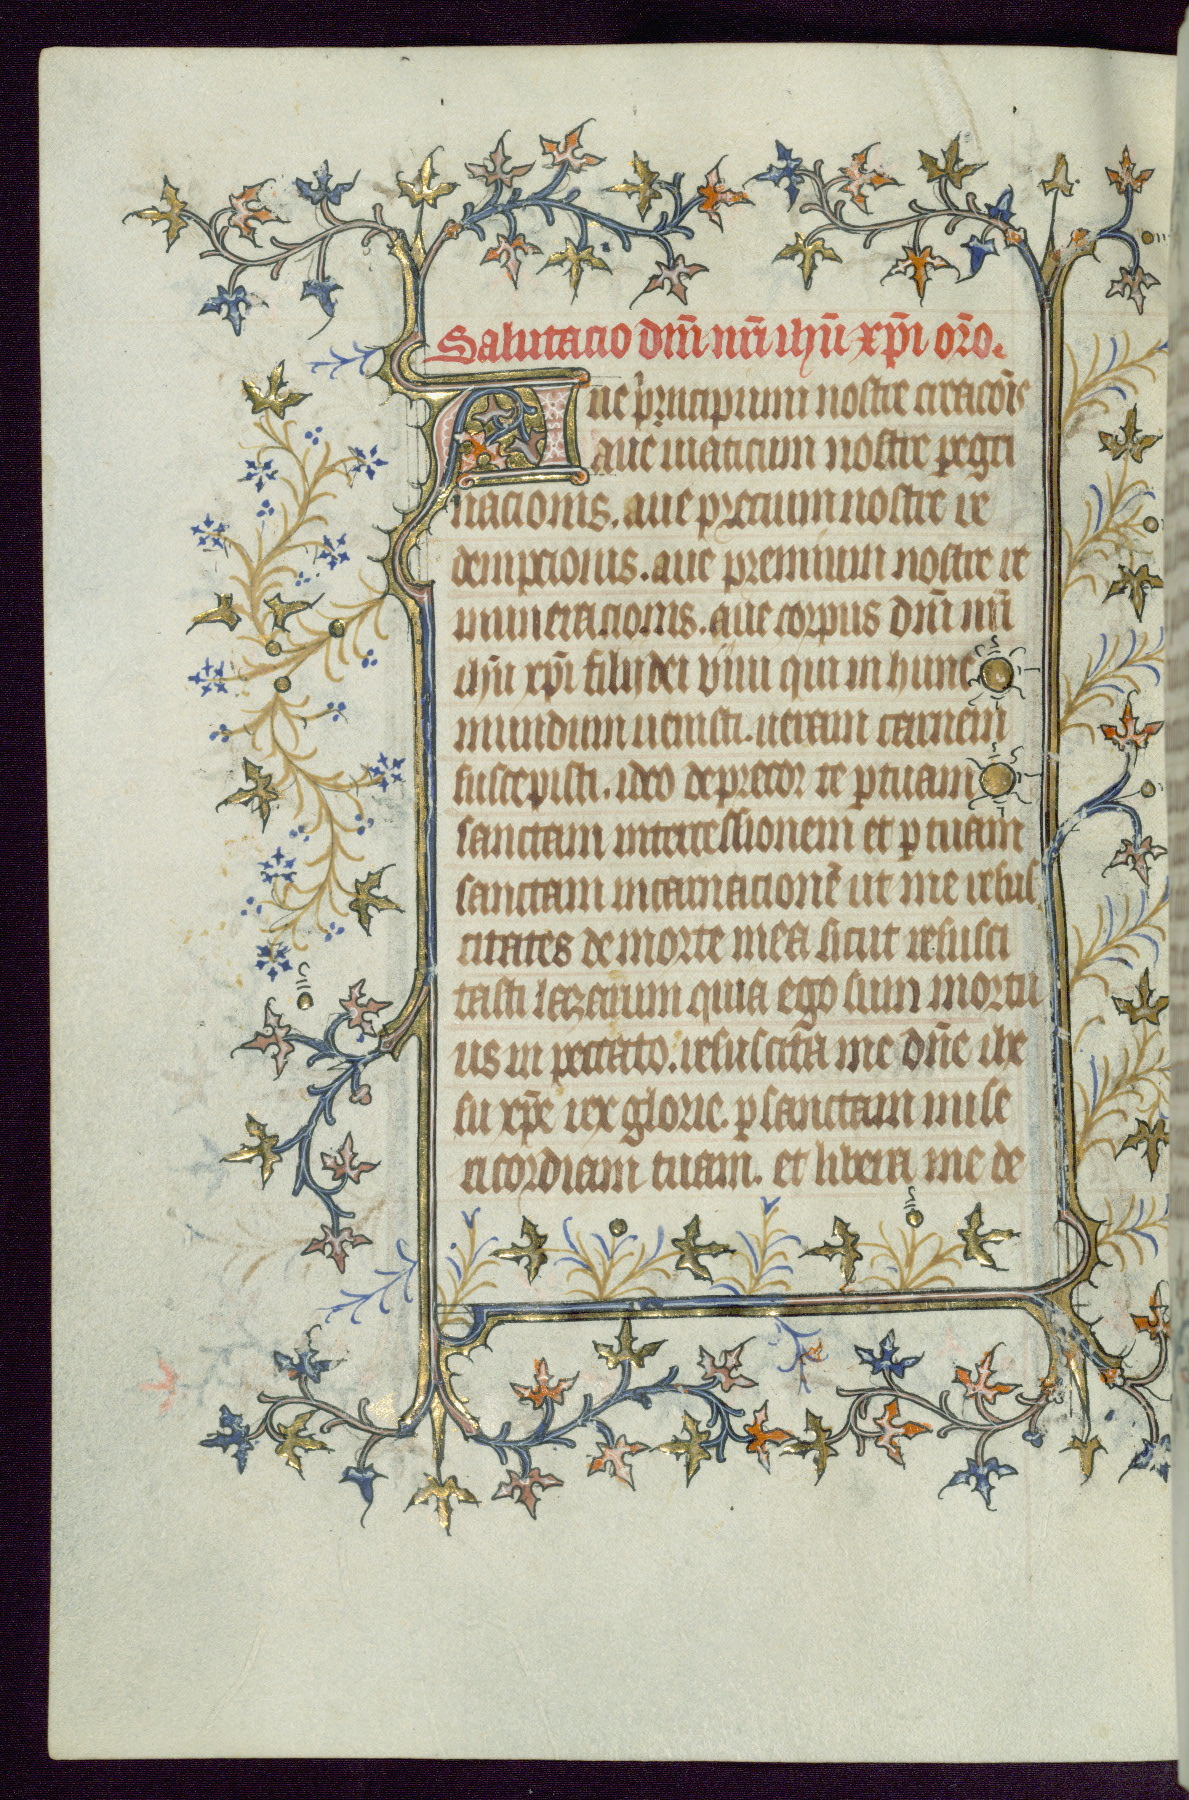 Salutacio dñi nr̃i ihũ xp̃i or̃o.
Aue principium nostre creacoñis
aue uiaticum nostre pegri
nacionis. aue precium nostre re
dempcionis. aue premium nostre re
muneracionis. aue corpus dñi nr̃i
ihũ xp̃i filij dei viui qui in hunc
mundum uenisti. ueram carnem
suscepisti. ideo deprecor te ꝑ tuam
sanctam intercessionem et ꝑ tuam
sanctam incarnacionẽ ut me resus
citates de morte mea sicut resusci
tasti lazarum quia ego sum mortu
us in peccato. resuscita me dñe ihe
su xp̃e rex glorie. ꝑ sanctam mise
ricordiam tuam. et libera me de